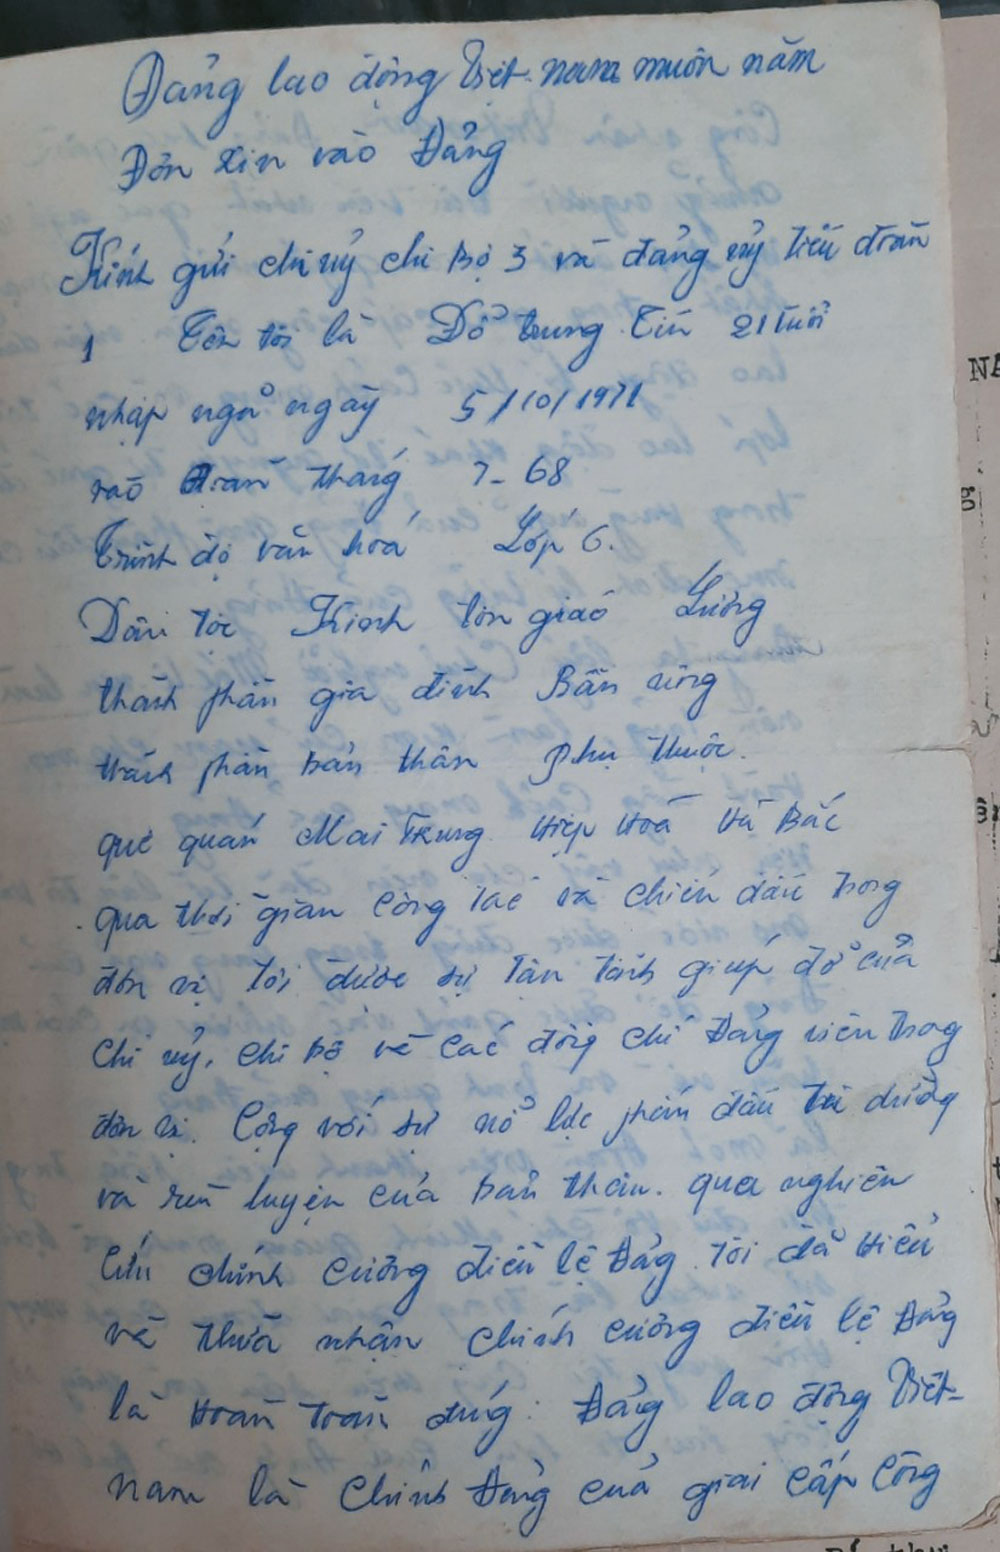 Đảng lao động Việt nam muôn năm
Đơn xin vào Đảng
Kính gửi chi uỷ chi bộ 3 và đảng uỷ tiểu đoàn
1 Tên tôi là Đỗ trung Tín 21 tuổi
nhập ngũ ngày 5/10/1971
vào Đoàn tháng 7-68
Trình độ văn hoá Lớp 6.
Dân tộc Kinh tôn giáo Lương
thành phần gia đình Bần nông
thành phần bản thân phụ thuộc.
quê quán Mai Trung Hiệp Hoà Hà Bắc
qua thời gian công tác và chiến đấu trong
đơn vị tôi được sự tận tình giúp đỡ của
chi uỷ, chi bộ về các đồng chí Đảng viên trong
đơn vị. Cộng với sự nỗ lực phấn đấu tu dưỡng
và rèn luyện của bản thân. qua nghiên
cứu chính cương điều lệ Đảng tôi đã hiểu
và thừa nhận chính cương điều lệ Đảng
là hoàn toàn đúng: Đảng lao động Việt-
nam là chính Đảng của giai cấp công
NA
g